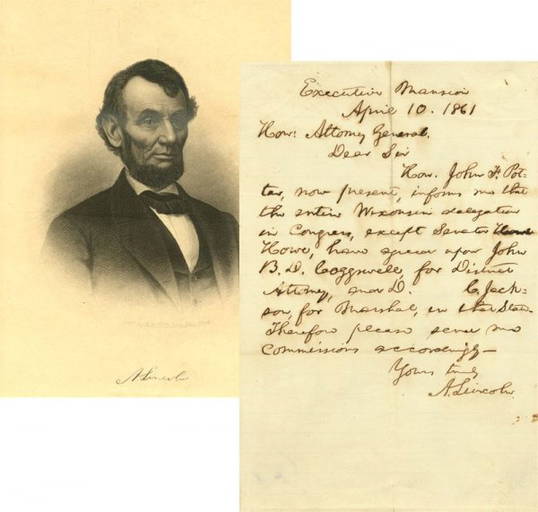 A. Lincoln
Executive Mansion
April 10. 1861
Hon: Attorney General.
Dear Sir
Hon. John F. Pot-
ter, now present, informs me that
the entire Wisconsin delegation
in Congress, except Senator
Howe, have agreed upon John
B. D. Coggswell, for District
Attorney, and D. C. Jack-
son, for Marshal, in that State.
Therefore please send me
Commissions accordingly—
Yours truly
A. Lincoln.